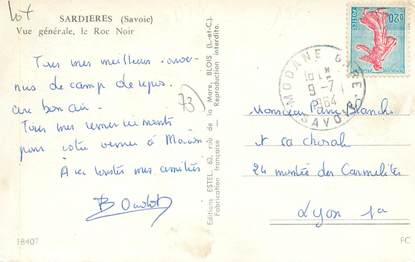 Lot
SARDIERES (Savoie)
Vue générale, le Roc Noir
Tous mes meilleurs
de camp de repos
bon air.
Tous mes remerciements
pour votre
A vous toutes mes amitiés
73
Editions ESTEL, 62, rue de la Mare, BLOIS (L.-et-C.)
Fabrication française — Reproduction interdite.
0,20
MODANE GARE
9-7
1964
SAVOIE
Monsieur Pierre
et sa chorale
24 montée des Carmélites
Lyon 1er
18407
FC